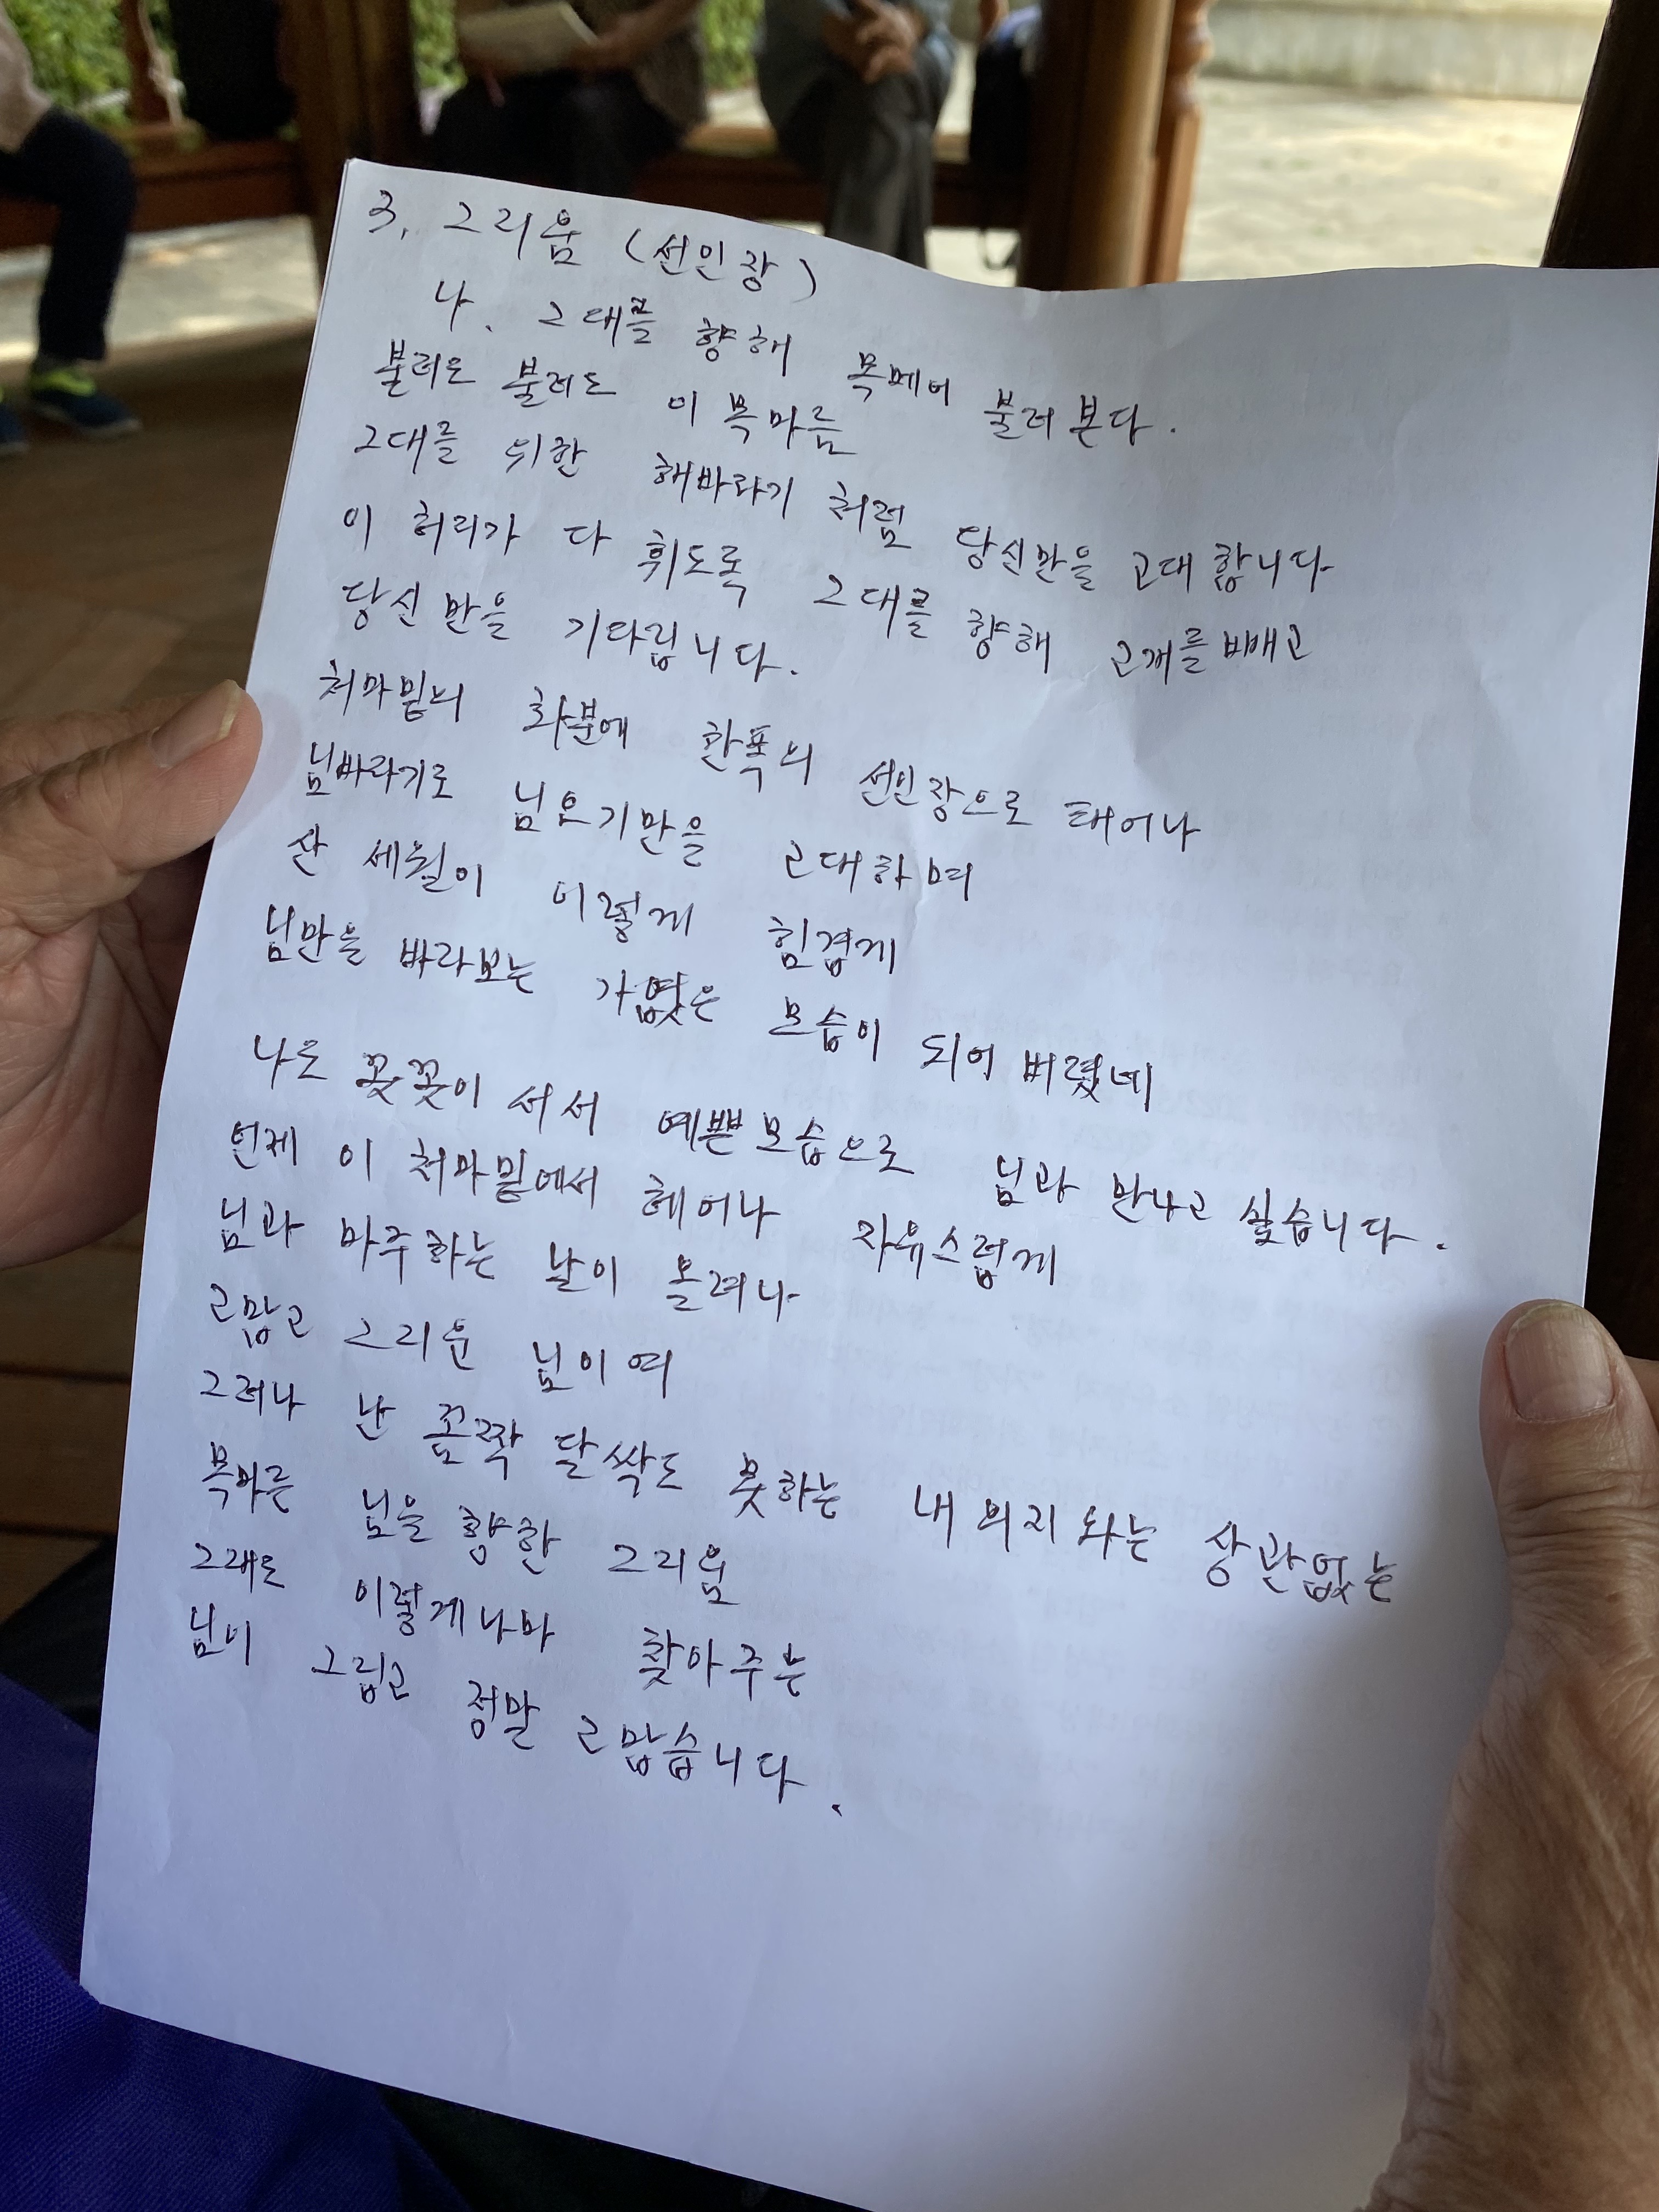 3. 그리움 (선인장)
나. 그대를 향해 목메어 불러본다.
불러도 불러도 이 목마름
그대를 위한 해바라기 처럼 당신만을 고대합니다
이 허리가 다 휘도록 그대를 향해 고개를 빼고
당신만을 기다립니다.
처마밑의 화분에 한폭의 선인장으로 태어나
님바라기로 님오기만을 고대하며
산 세월이 이렇게 힘겹게
님만을 바라보는 가엾은 모습이 되어 버렸네
나도 꽂꽂이 서서 예쁜모습으로 님과 만나고 싶습니다.
언제 이 처마밑에서 헤어나 자유스럽게
님과 마주하는 날이 올려나
고맙고 그리운 님이여
그러나 난 꼼짝 달싹도 못하는 내 의지와는 상관없는
목마른 님을 향한 그리움
그래도 이렇게나마 찾아주는
님이 그립고 정말 고맙습니다.